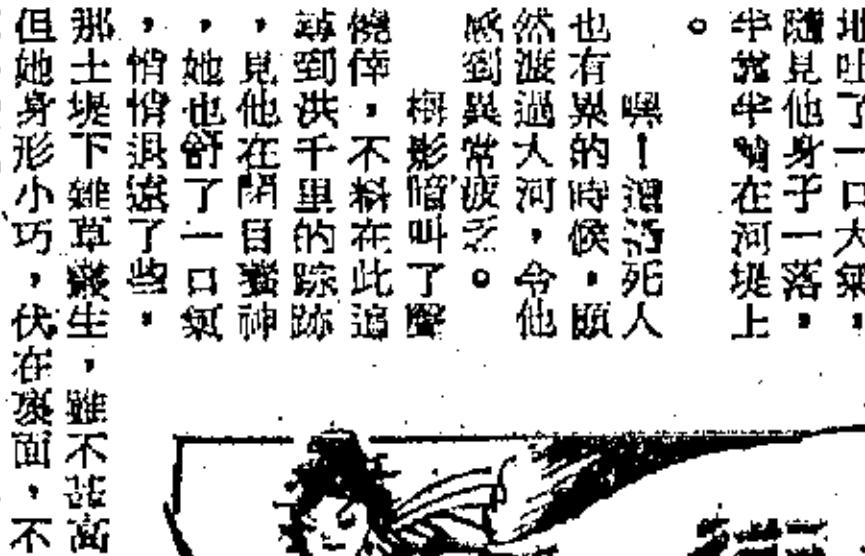 地吐了一口大氣，
隨見他身子一落，
半靠半躺在河堤上
。
嘿！這活死人
也有累的時候，顯
然渡過大河，令他
感到異常疲乏。
梅影暗叫了聲
僥倖，不料在此追
尋到洪千里的踪跡
，見他在閉目養神
，她也舒了一口氣
，悄悄退遠了些。
那土堤下雜草叢生，雖不甚高
但她身形小巧，伏在裏面，不